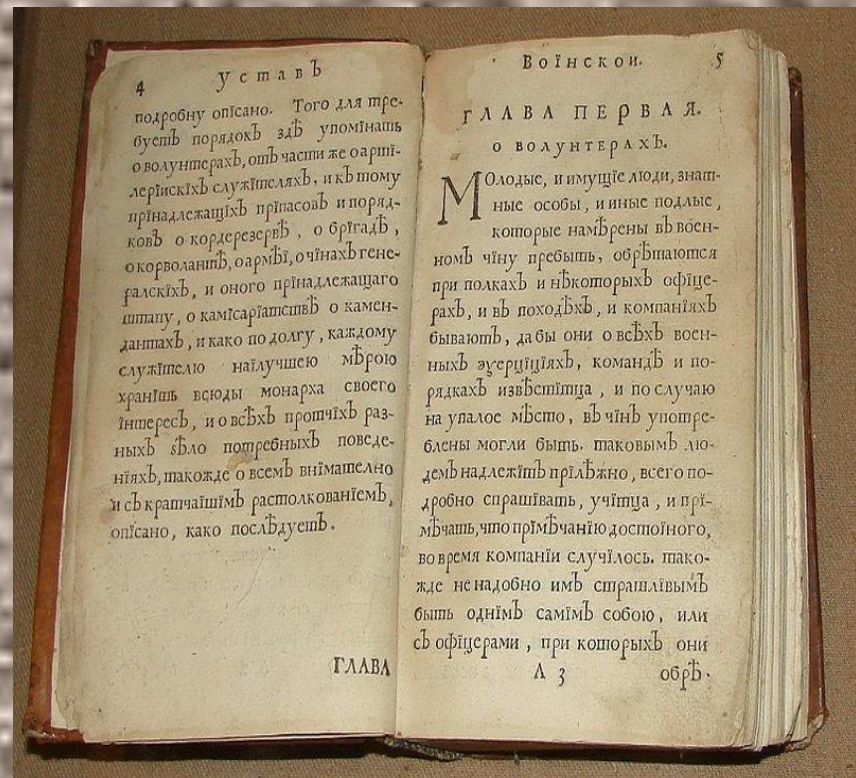 4 УставЪ
подробну опїсано. Того для тре-
буетЪ порядокЪ здѢ упомїнать
о волунтерахЪ, отЪ части же о артї-
лерїискїхЪ служїтеляхЪ, и кЪ тому
прїнадлежащїхЪ прїпасовЪ и поряд-
ковЪ о кордерезервѢ , о брїгадѢ ,
о корволантѢ, о армѢї, о чїнахЪ гене-
ралскїхЪ, и оного прїнадлежащаго
штапу , о камїсарїатствѢ о камен-
дантахЪ , и како по долгу , каждому
служїтелю наїлучшею мѢрою
хранїть всюды монарха своего
їнтересЪ, и о всѢхЪ протчїхЪ раз-
ныхЪ ѕѢло потребныхЪ поведе-
нїяхЪ, такожде о всемЪ внїмателно
и сЪ кратчаїшїмЪ растолкованїемЪ,
опїсано, како послѢдуетЪ .
ГЛАВА
Воїнскои. 5
ГЛАВА ПЕРВАЯ.
о волунтерахЪ.
МОлодые, и имущїе люди, знат-
ные особы , и иные подлые ,
которые намѢрены вЪ воен-
номЪ чїну пребыть, обрѢтаются
при полкахЪ и нѢкоторыхЪ офїце-
рахЪ, и вЪ походѢхЪ , и компанїяхЪ
бываютЪ , да бы они о всѢхЪ воен-
ныхЪ эѯерцїцїяхЪ, командѢ и по-
рядкахЪ извѢстїтца , и по случаю
на упалое мѢсто, вЪ чїнЪ употре-
блены могли быть. таковымЪ лю-
демЪ надлежїтЪ прїлѢжно, всего по-
дробно спрашївать, учїтца , и прї-
мѢчать, что прїмѢчанїю достоїного,
во время компанїи случїлось. тако-
жде не надобно имЪ страшлївымЪ
быть однїмЪ самїмЪ собою, или
сЪ офїцерами , при которыхЪ они
А 3 обрѢ-